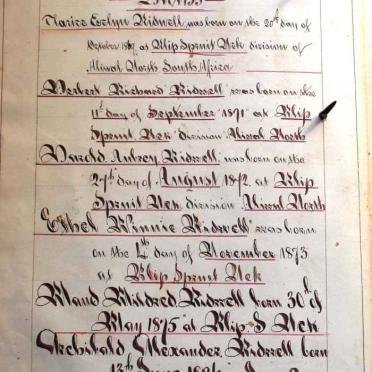 was born on the 20th day of
at Klip Spruit Nek division of
Aliwal North South Africa
Herbert Richard Bidwell was born on the
11th day of September 1871 at Klip
Spruit Nek Division Aliwal North
Harold Aubrey Bidwell was born on the
27th day of August 1872 at Klip
Spruit Nek division Aliwal North
Ethel Winnie Bidwell was born
on the day of November 1873
at Klip Spruit Nek
Maud Mildred Bidwell born 30th of
May 1875 at Klip S Nek
Archibald Alexander Bidwell born
13th June